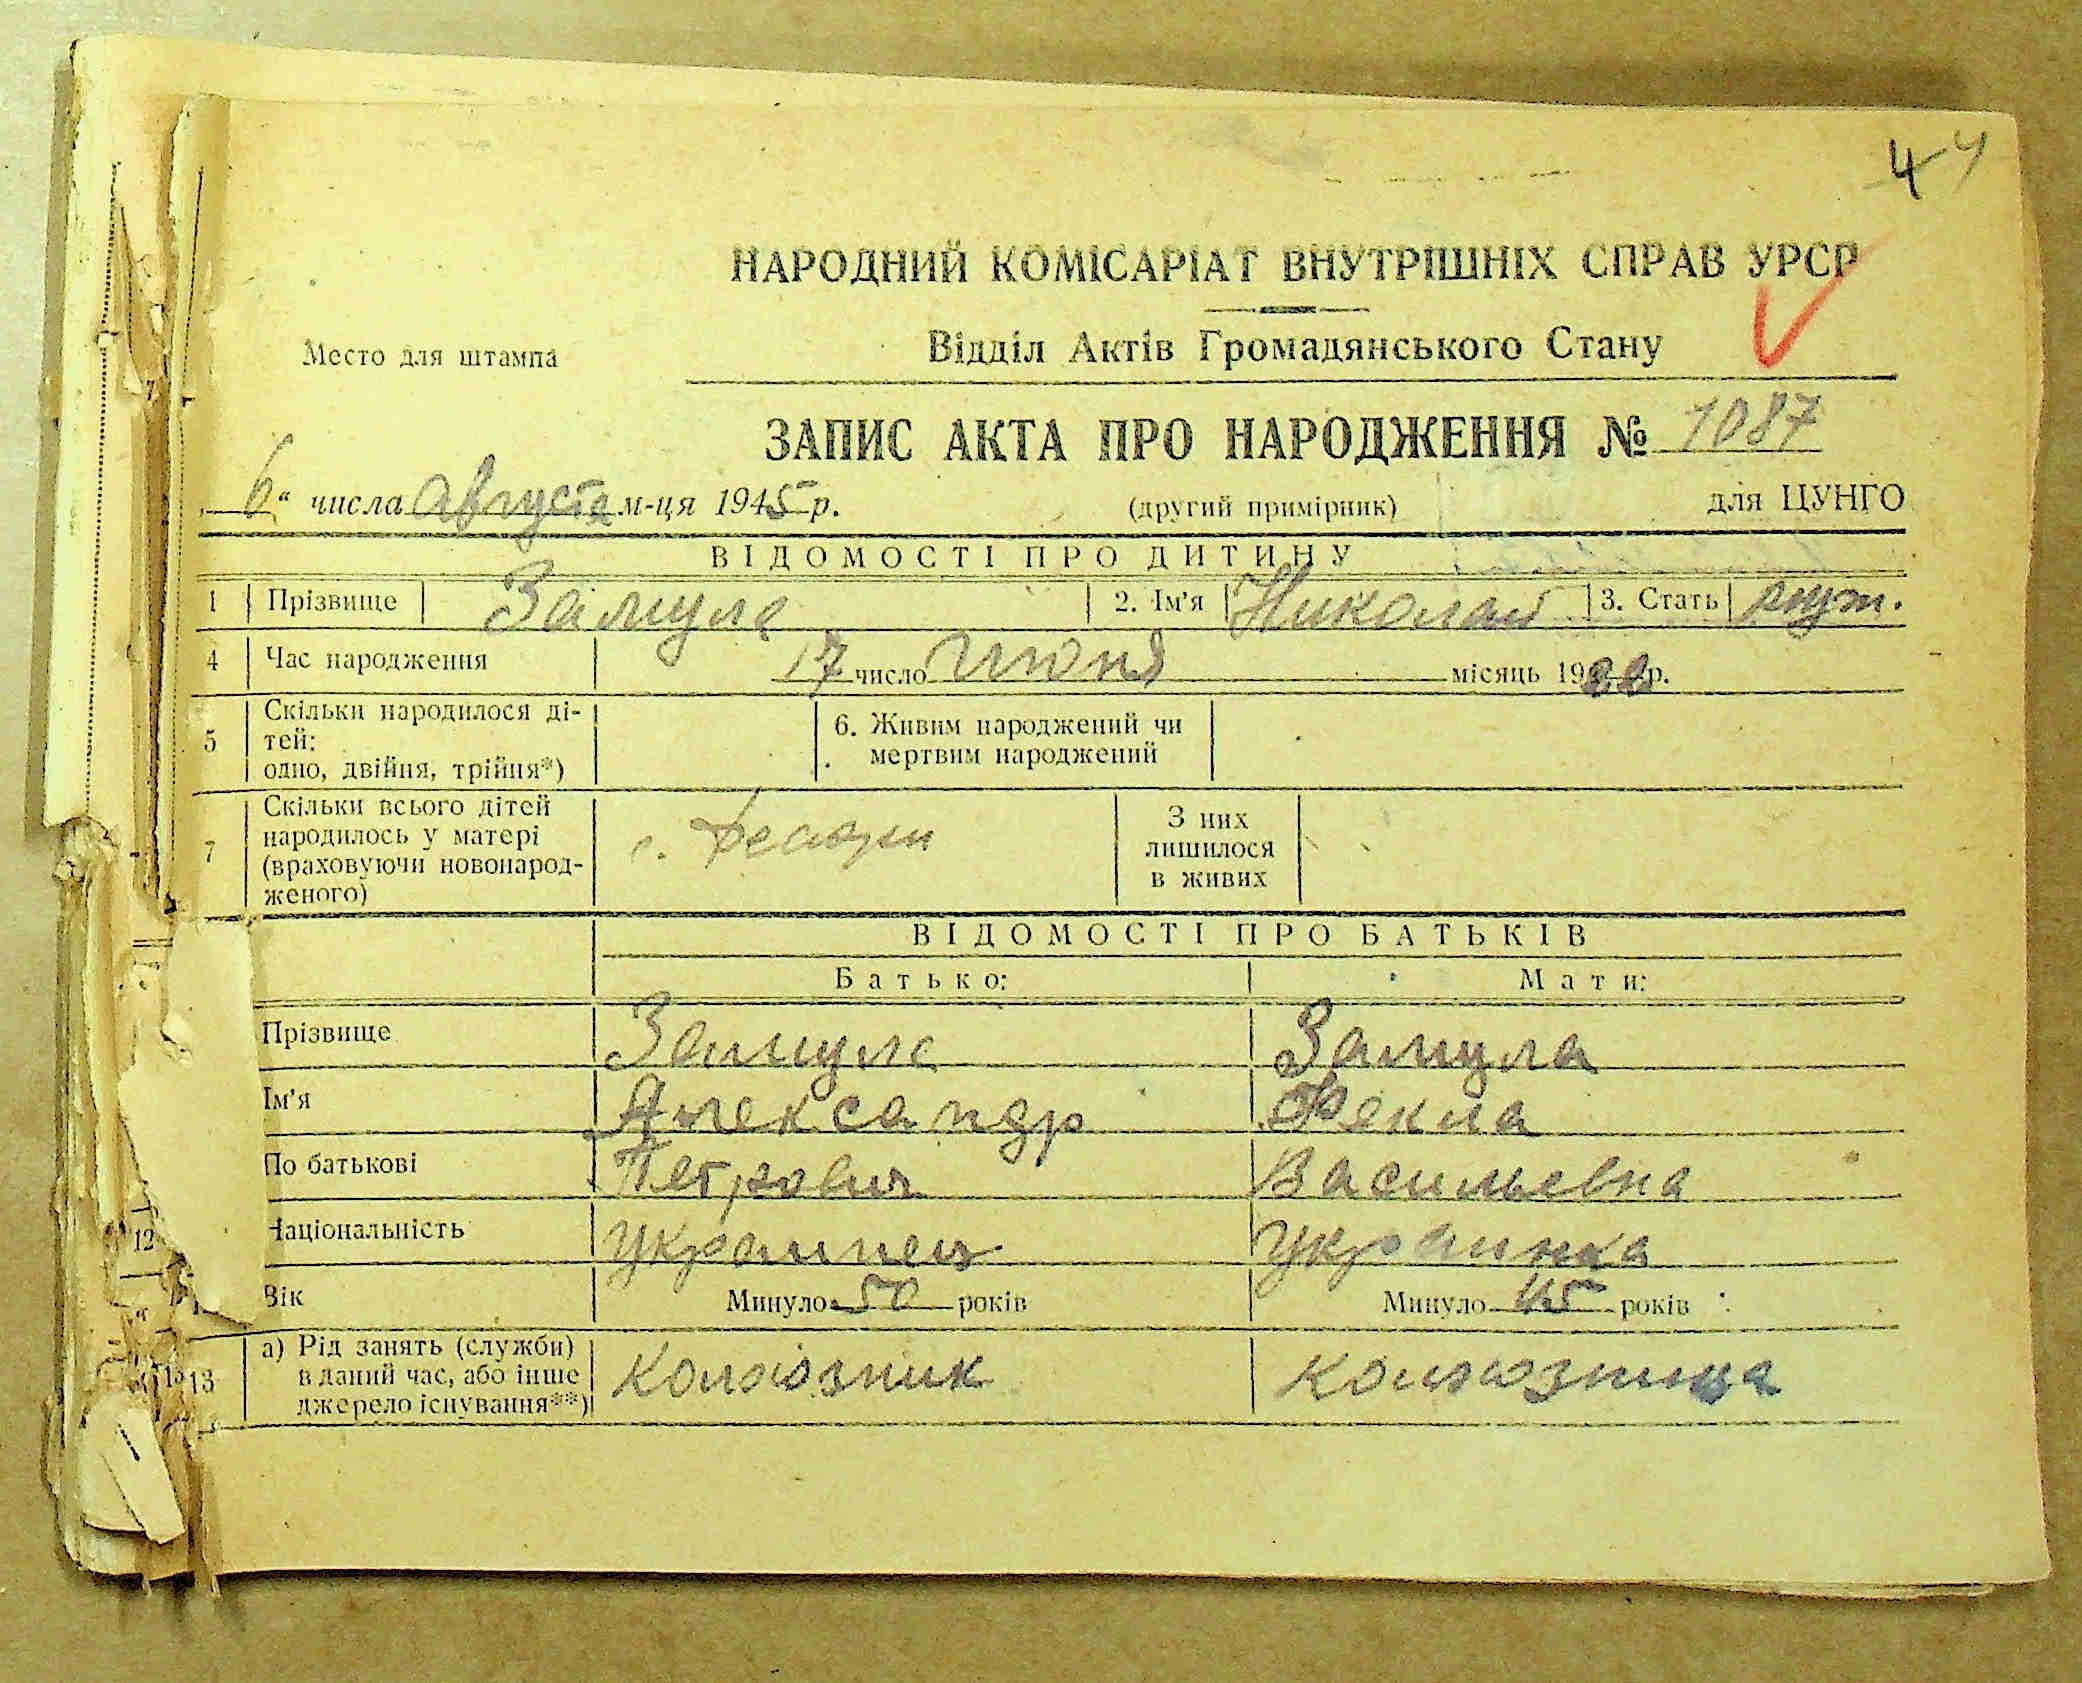 44
НАРОДНИЙ КОМІСАРІАТ ВНУТРІШНІХ СПРАВ УРСР
Место для штампа
Відділ Актів Громадянського Стану
ЗАПИС АКТА ПРО НАРОДЖЕННЯ № 1087
„6“ числа августа м-ця 1945 р. (другий примірник) для ЦУНГО
ВІДОМОСТІ ПРО ДИТИНУ
1 Прізвище Замула 2. Ім'я Николай 3. Стать муж.
4 Час народження 17 число июня місяць 19 р.
5 Скільки народилося ді-
тей:
одно, двійня, трійня*)
6. Живим народжений чи
мертвим народжений
7 Скільки всього дітей
народилось у матері
(враховуючи новонарод-
женого)
с.
З них
лишилося
в живих
ВІДОМОСТІ ПРО БАТЬКІВ
Батько: Мати:
Прізвище Замула Замула
Ім'я Александр Фекла
По батькові Петрович Васильевна
12 Національність украинец украинка
Вік Минуло 50 років Минуло 45 років
13 а) Рід занять (служби)
в даний час, або інше
джерело існування**)
колхозник колхозница